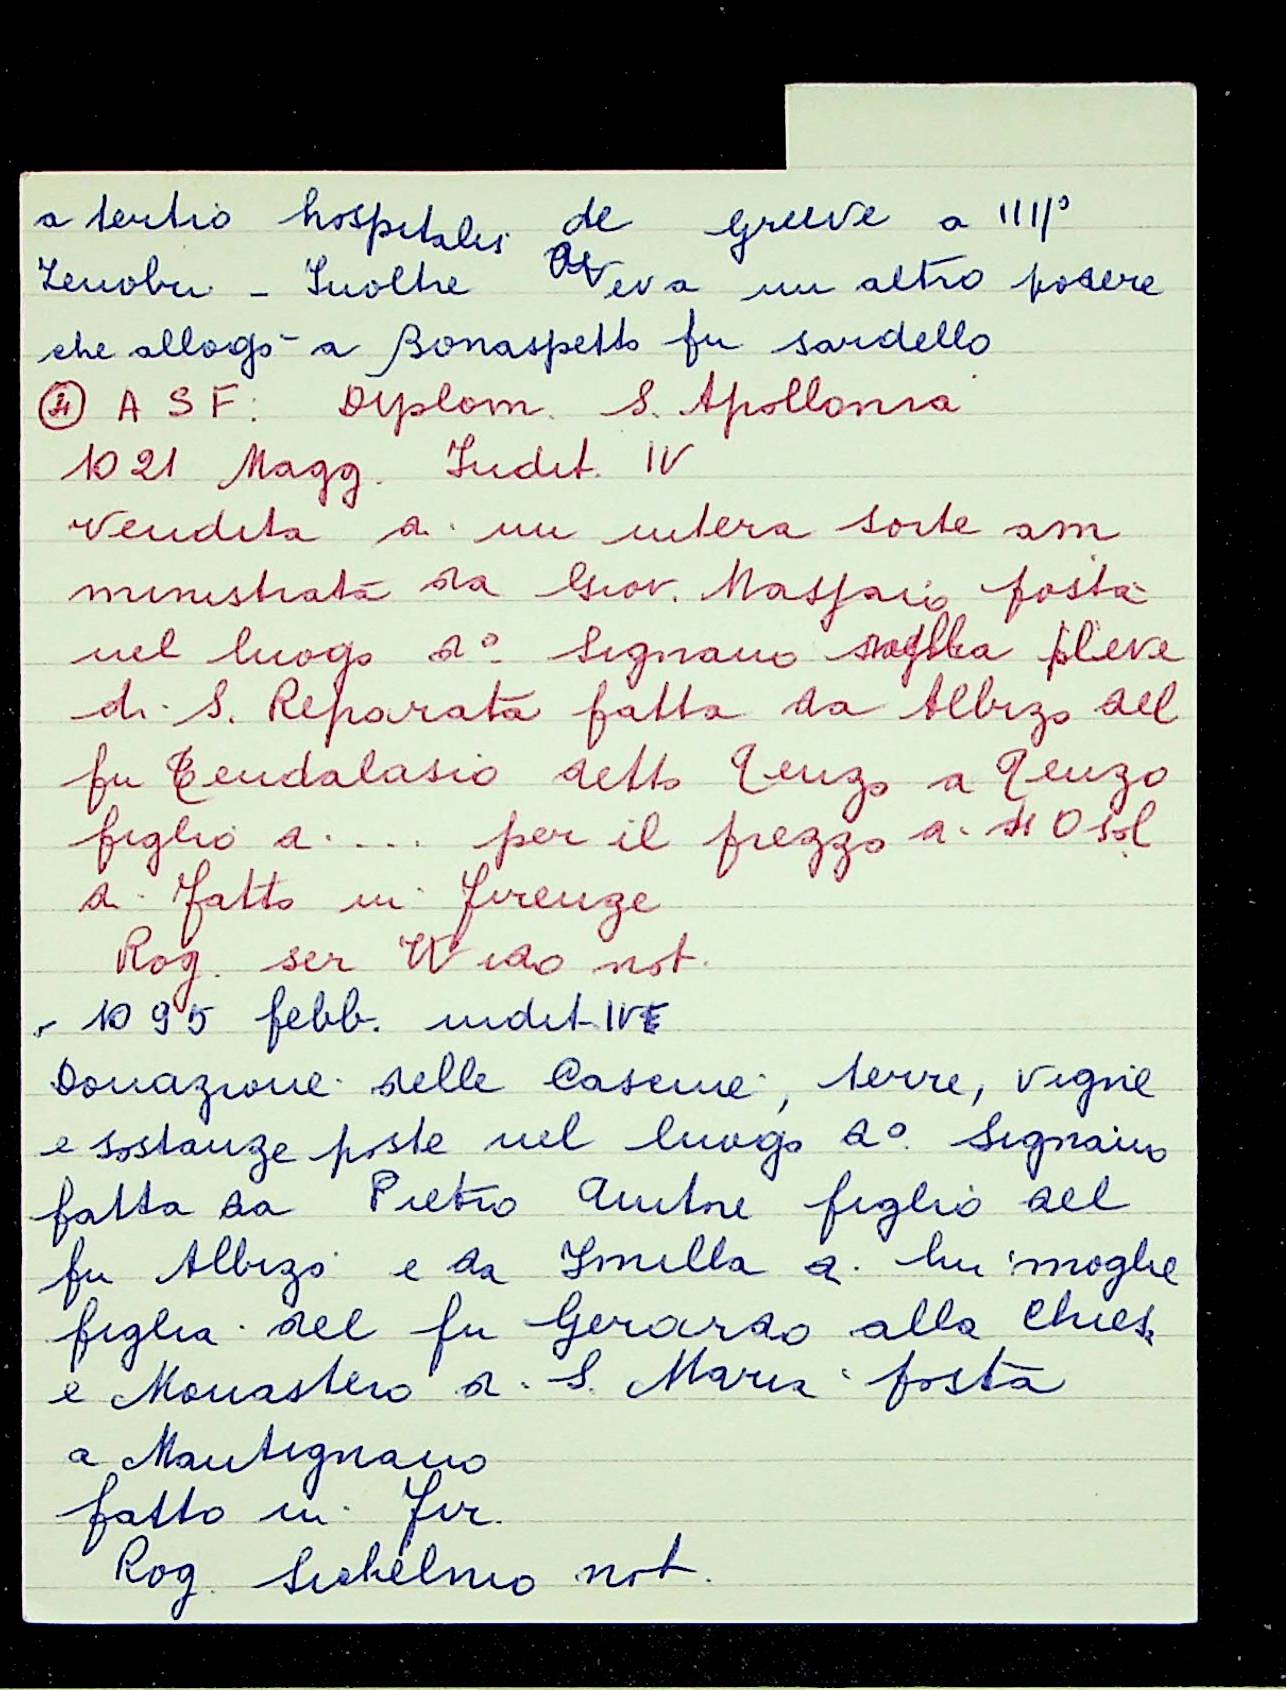 a tertio hospitalis de Greeve a IIIIº
Zenobii - Inoltre aveva un altro podere
che allogò a Bonaspetto fu sardello
④ A S F: Diplom. S. Apollonia
1021 Magg. Indit. IV
Vendita di un intera sorte am
ministrata da Giov. Massaio posta
nel luogo dº Signano nella pieve
di S. Reparata fatta da Albizo del
fu Teudalasio detto Tenzo a Tenzo
figlio di .... per il prezzo di 40 sol
d. Fatto in Firenze
Rog. ser Wido not.
1095 febb. indit IV
Donazione delle Casene, terre, vigne
e sostanze poste nel luogo dº Signano
fatta da Pietro figlio del
fu Albizo e da Ermilla di lui moglie
figlia del fu Gerardo alla Chies.
e Monastero di S. Maria posta
a Mantignano
fatto in Fir.
Rog. Sichelmo not.